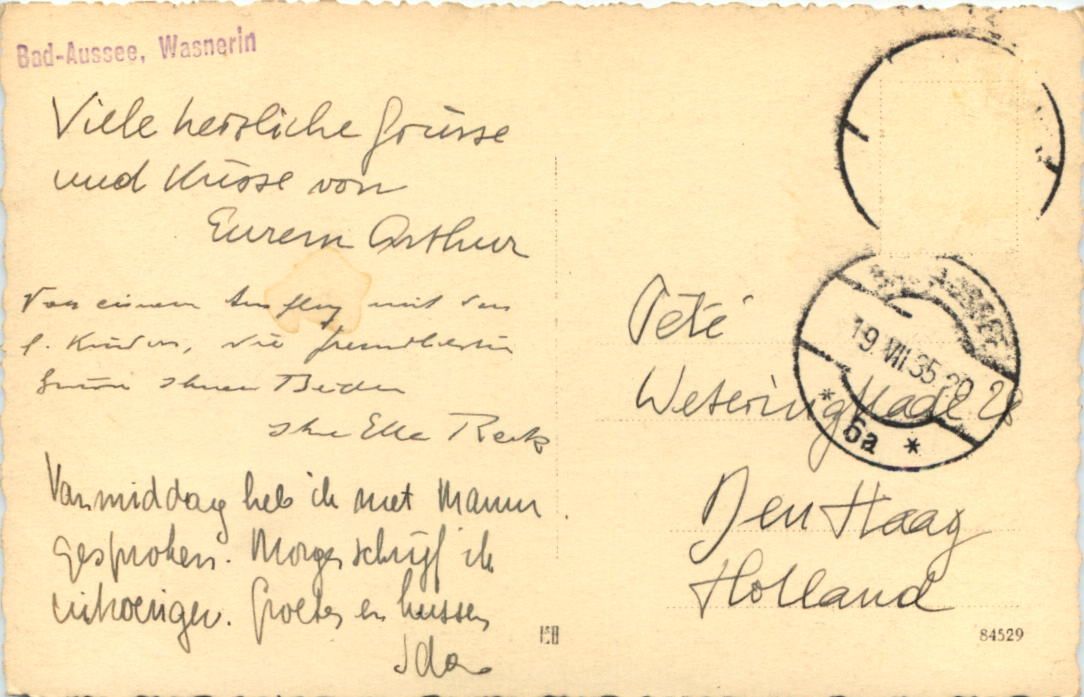 Bad-Aussee, Wasnerin
Viele herzliche Grüsse
und Küsse von
Eurem Arthur
Von einem Ausflug mit den
l. Kindern, die freundlichsten
Grüsse Ihnen Beiden
Ihre Elle
Vanmiddag heb ik met Mamm
gesproken. Morgen schrijf ik
uitvoeriger. Groeten en kussen
Ida
AUSSEE
19.VII.35.20
* 6a *
Peté
Den Haag
Holland
84529